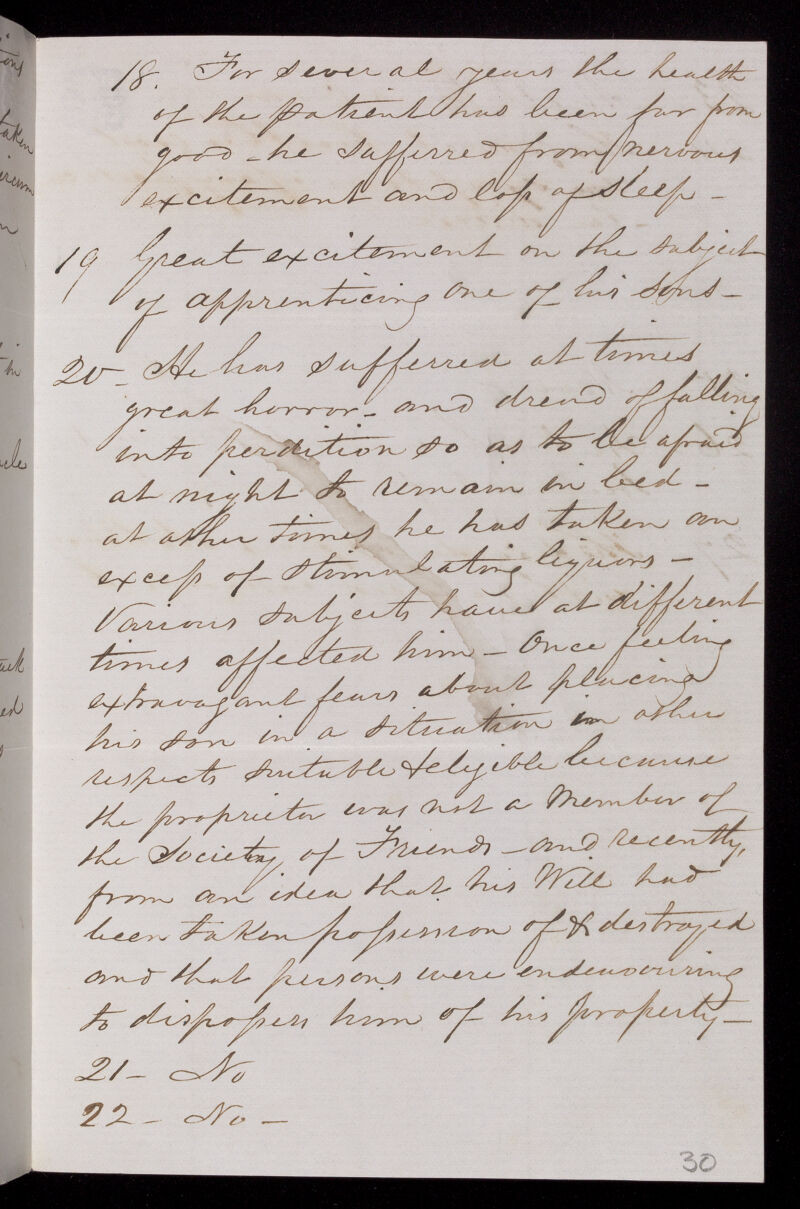 18. For several years the health
of the patient has been far from
good - he sufferred from nervous
excitement and loss of sleep -
19 Great excitement on the subject
of apprenticing one of his sons -
20 - He has sufferred at times
great horror - and dread of falling
into perdition so as to be afraid
at night to remain in bed -
at other times he has taken an
excess of stimulating liquors -
Various subjects have at different
times affected him - Once feeling
extravagant fears about placing
his son in a situation in other
respects suitable & eligible because
the proprietor was not a Member of
the Society of Friends - and recently,
from an idea that his Will had
been taken possession of & destroyed
and that persons were endeavouring
to dispossess him of his property -
21 - No
22 - No -
30